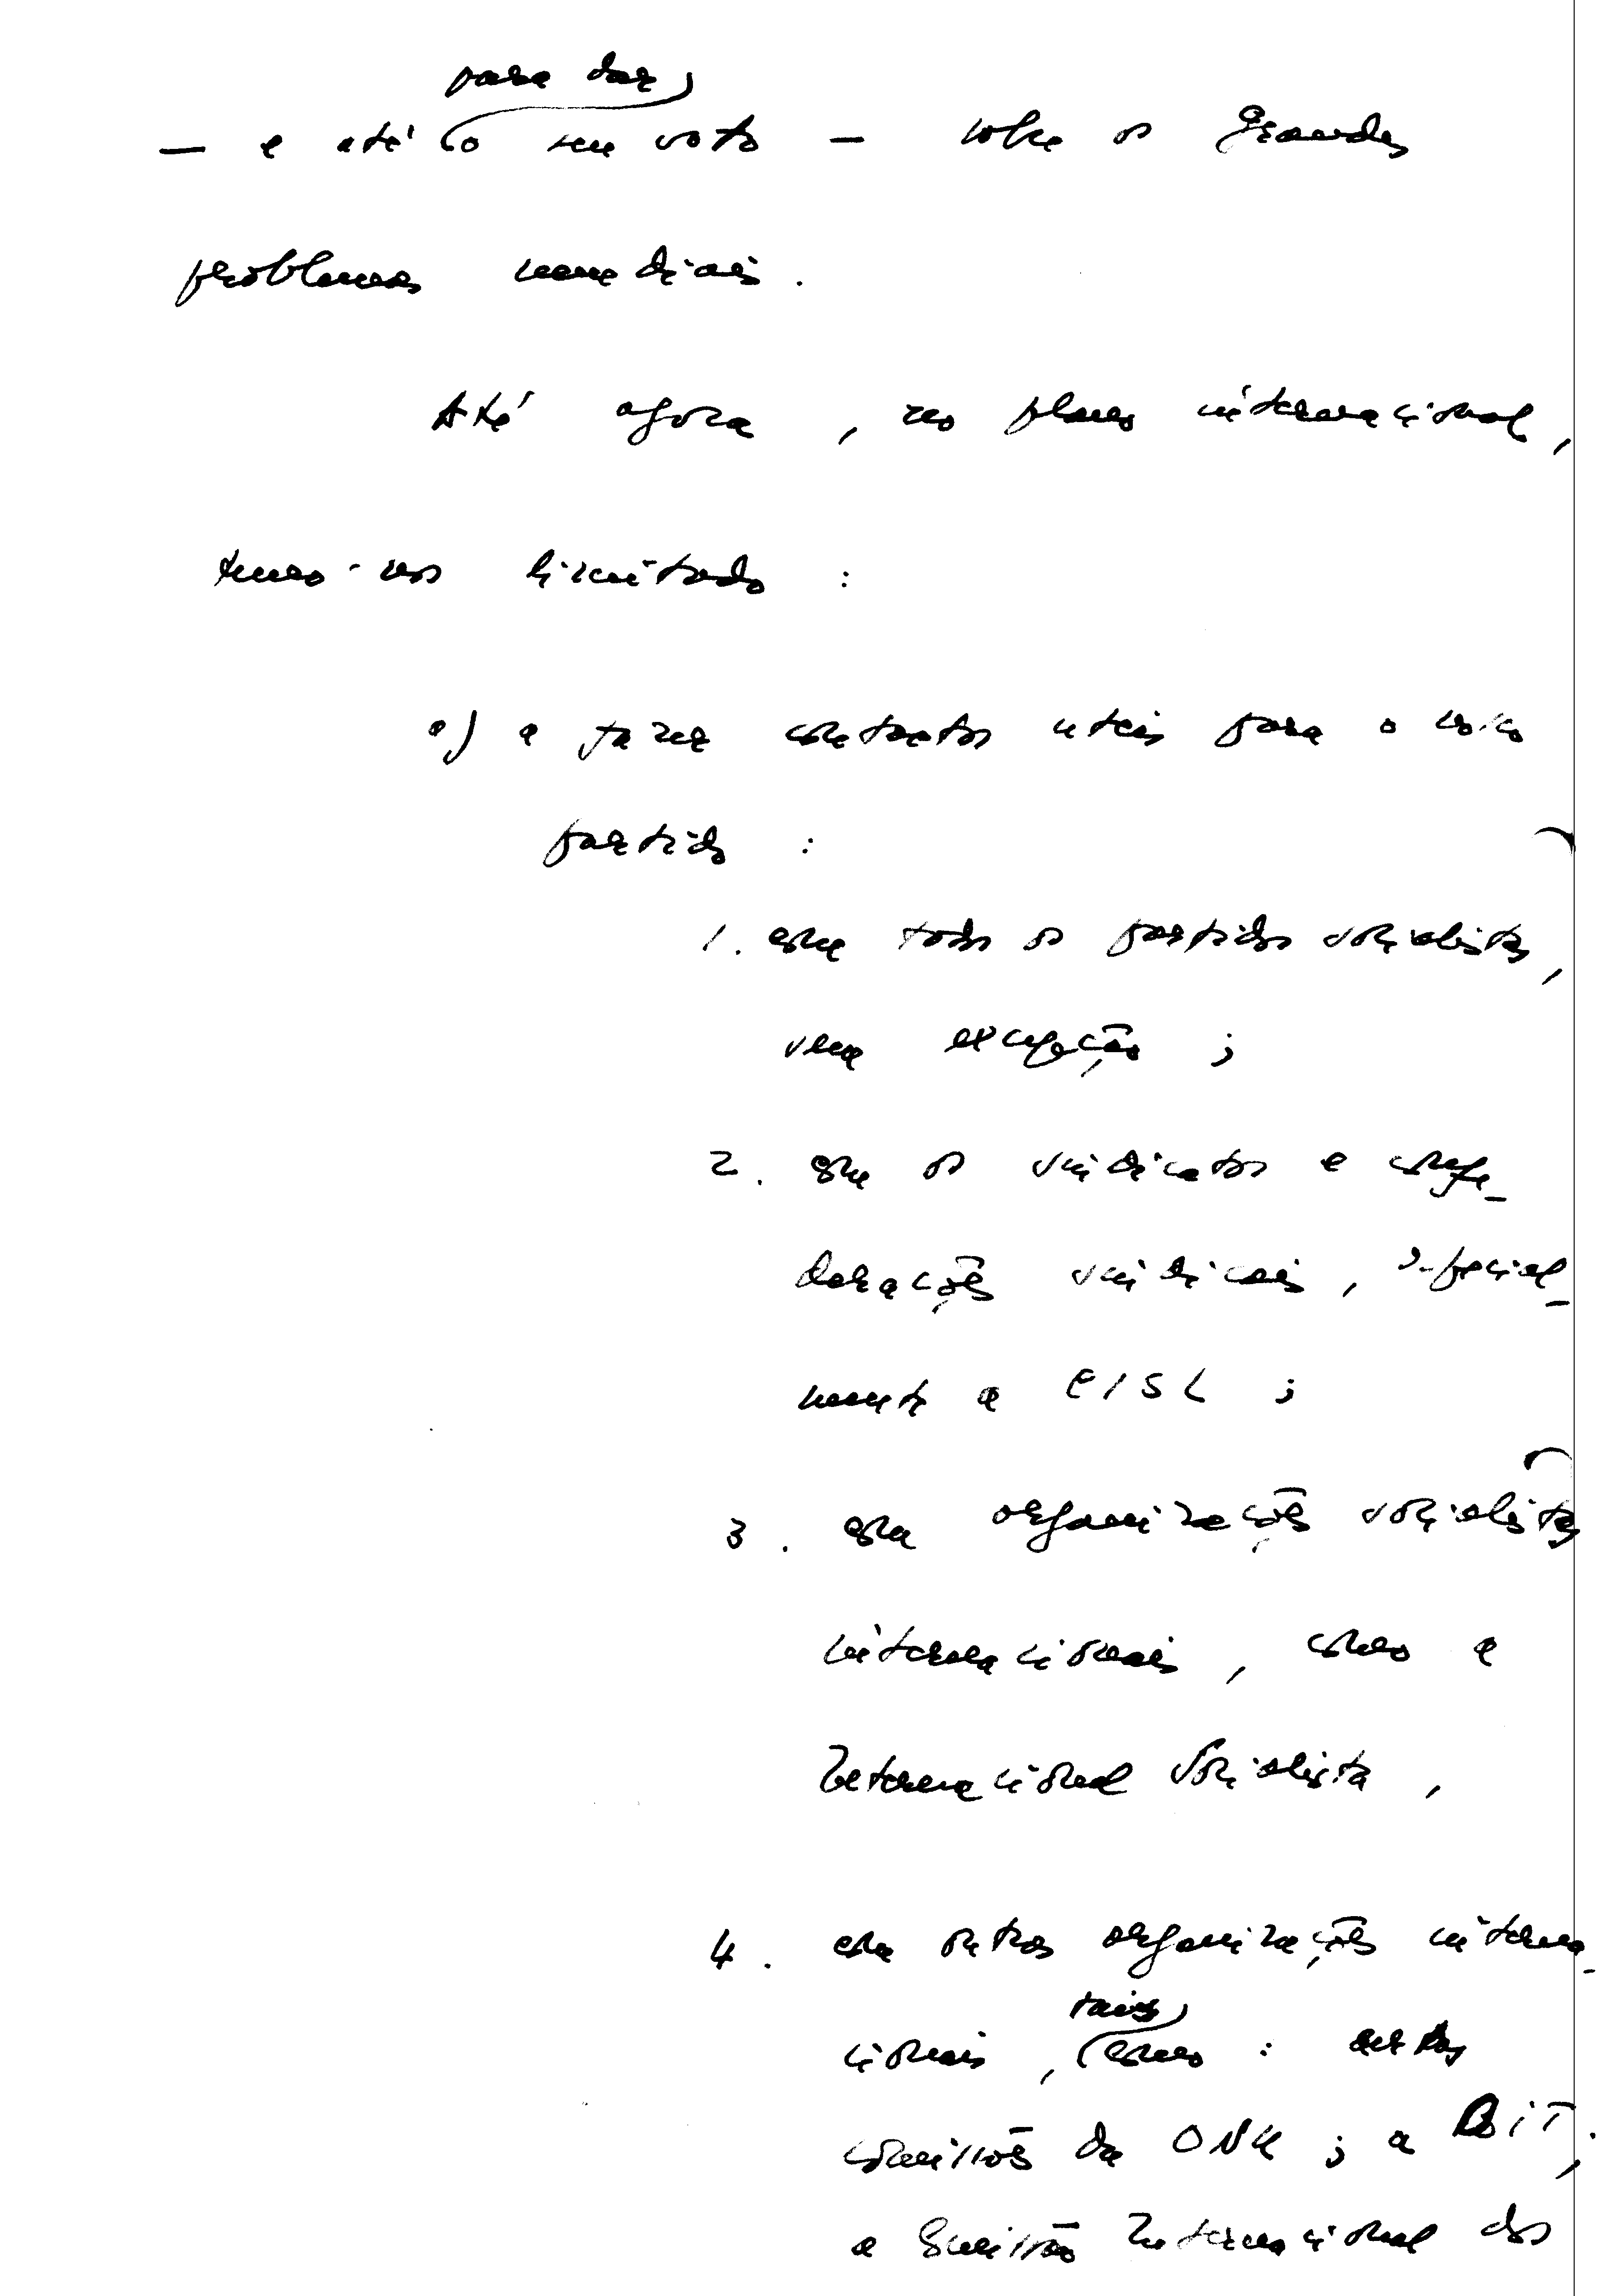 para dar
— e até o seu voto — sobre os grandes
problemas mundiais.
Até agora, no plano internacional,
temo-nos limitado:
a) a fazer contactos uteis para o nosso
partido:
1. com todos os partidos socialistas,
sem excepção;
2. com os sindicatos e confe-
derações sindicais, especial-
mente a CISL;
3. com organizações socialistas
internacionais, como a
Internacional Socialista,
4. com outras organizações interna-
tais
cionais, como: certas
comissões da ONU; a BIT,
a Comissão Internacional dos